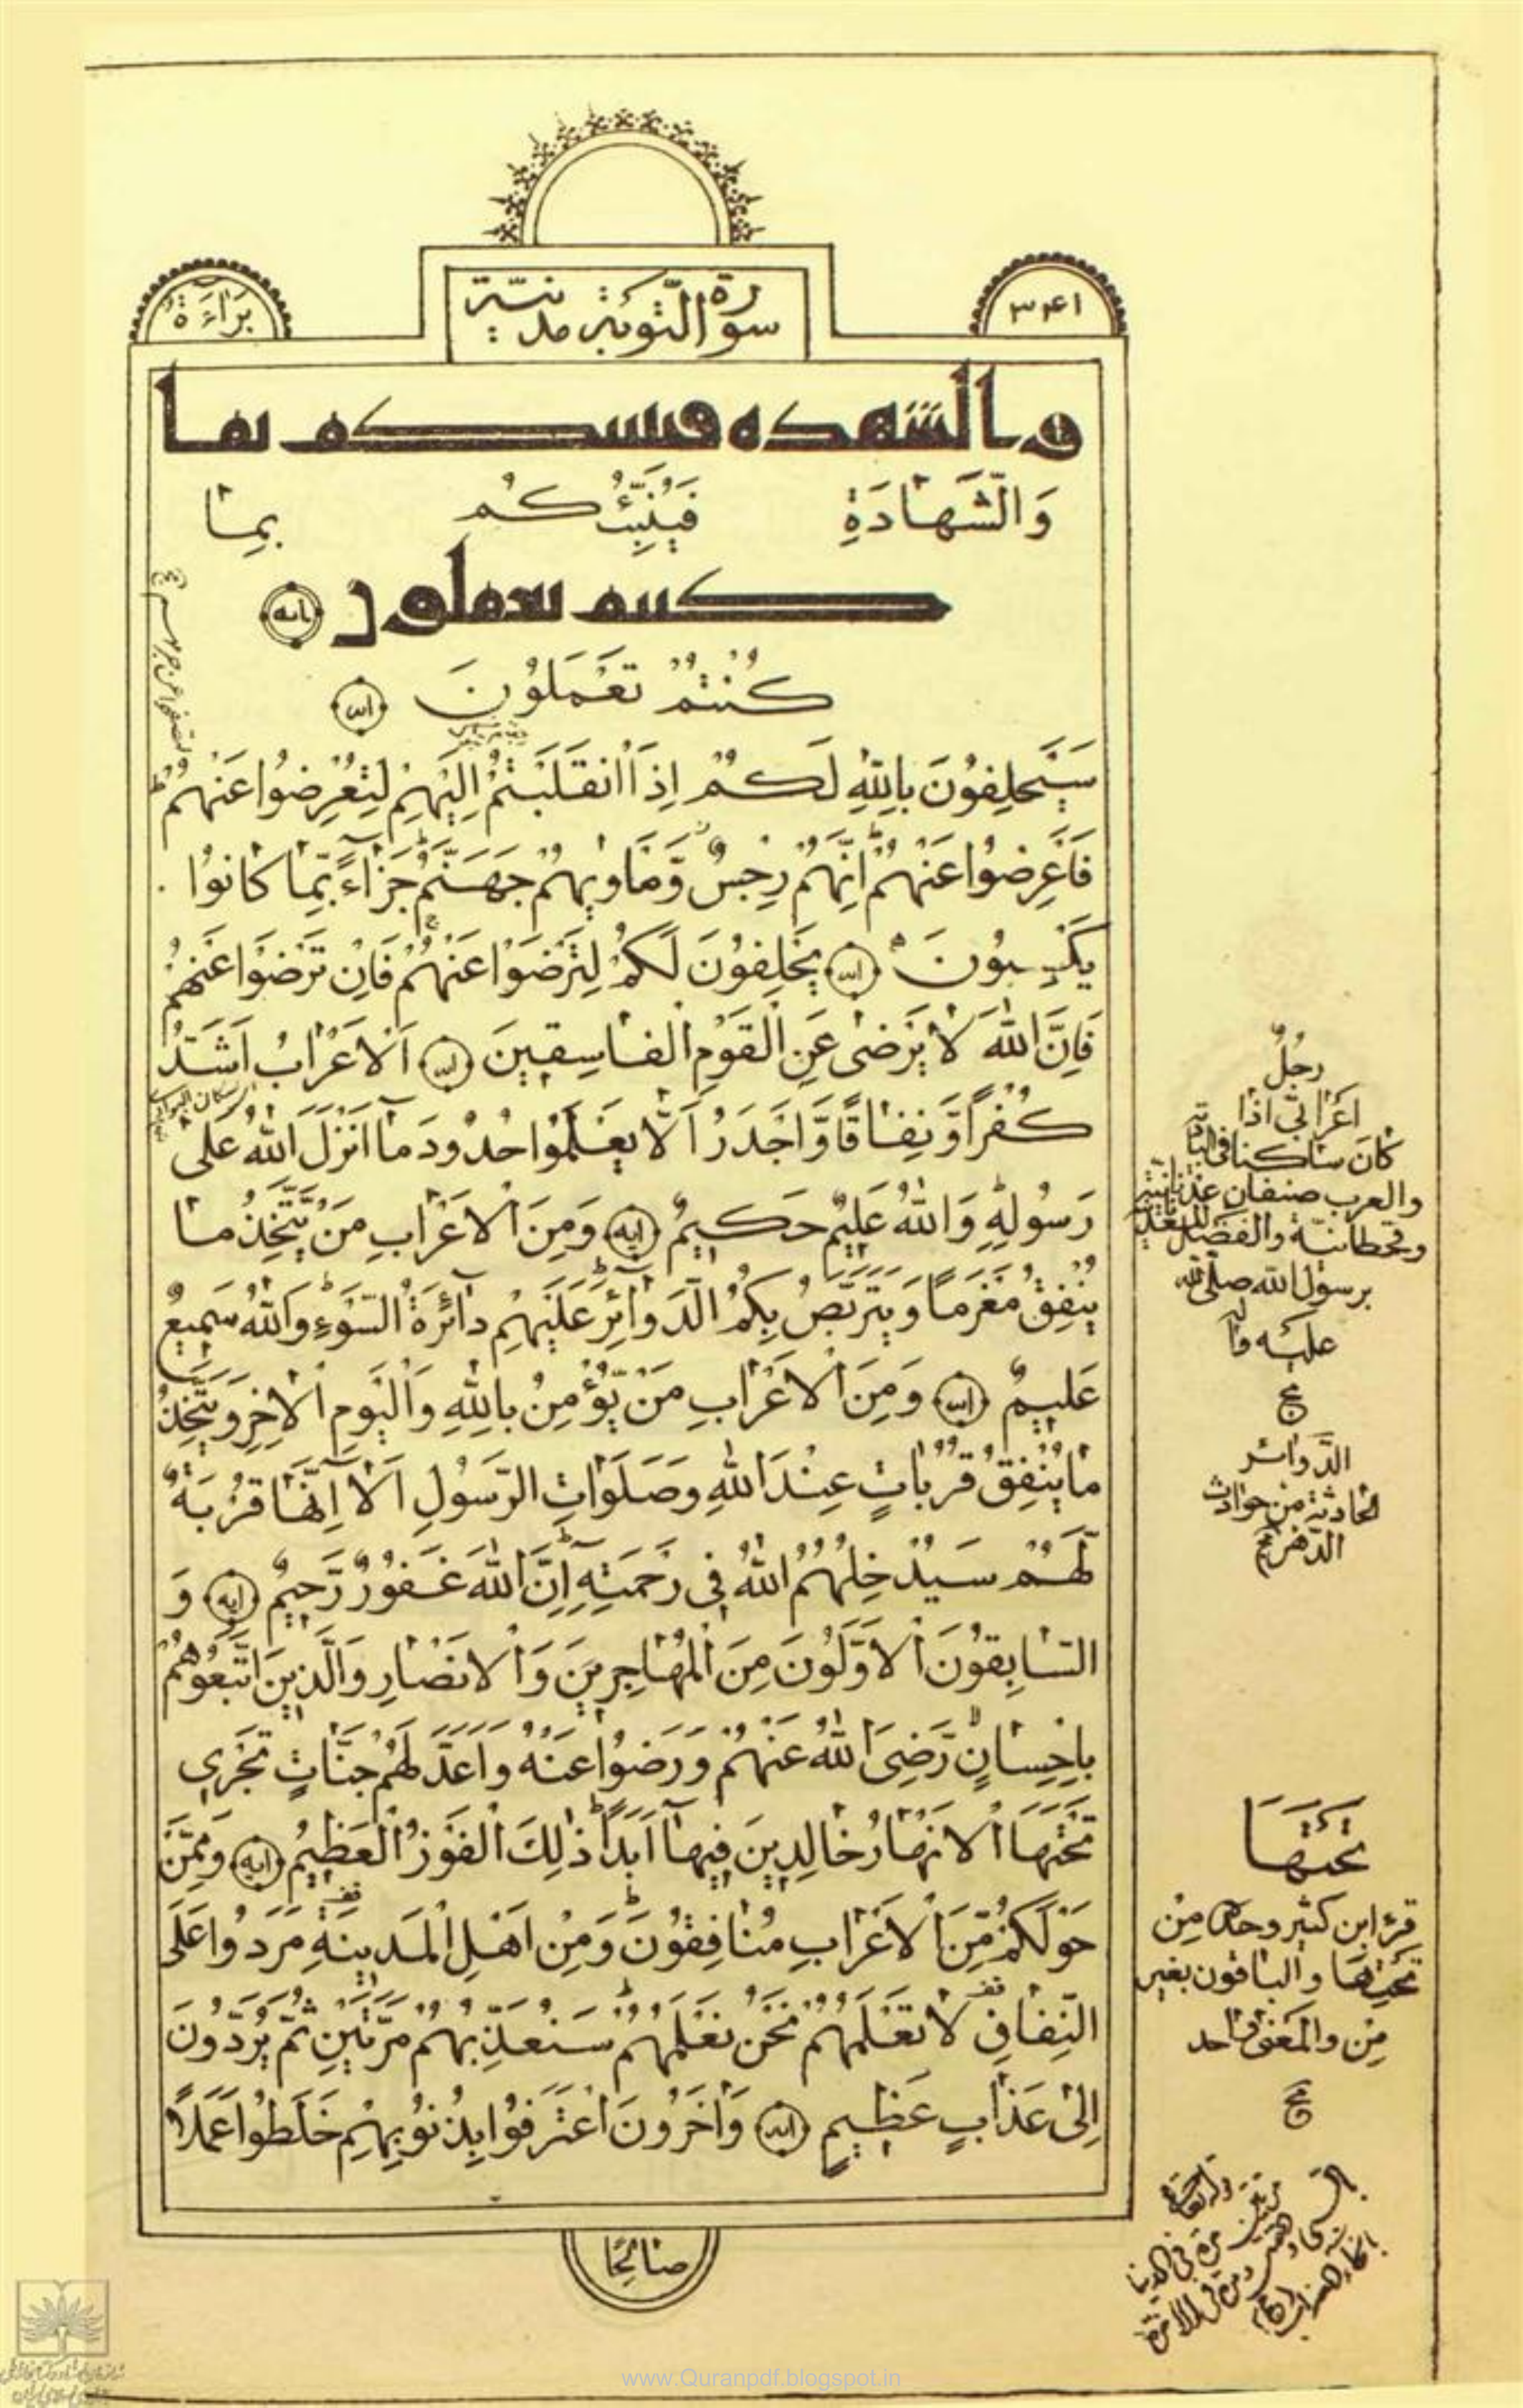 ٣٤١
سورة التوبة مدنية
بَرَاءَةٌ
والشهده فينبئكم بما
وَالشَّهَادَةِ فَيُنَبِّئُكُمْ بِمَا
كنتم تعملون ایه
كُنْتُمْ تَعْمَلُونَ ایه
سَيَحْلِفُونَ بِاللهِ لَكُمْ اِذَا انْقَلَبْتُمْ اِلَيْهِمْ لِتُعْرِضُوا عَنْهُمْ ط
فَاَعْرِضُوا عَنْهُمْ ط اِنَّهُمْ رِجْسٌ وَّمَاْوٰيهُمْ جَهَنَّمُ ج جَزَآءً بِّمَا كَانُوا
يَكْسِبُونَ ایه يَحْلِفُونَ لَكُمْ لِتَرْضَوْا عَنْهُمْ ج فَاِنْ تَرْضَوْا عَنْهُمْ
فَاِنَّ اللهَ لَا يَرْضٰى عَنِ الْقَوْمِ الْفَاسِقِينَ ایه اَلْاَعْرَابُ اَشَدُّ
كُفْرًا وَّنِفَاقًا وَّاَجْدَرُ اَلَّا يَعْلَمُوا حُدُودَ مَآ اَنْزَلَ اللهُ عَلٰى
رَسُولِهِ ط وَاللهُ عَلِيمٌ حَكِيمٌ ایه وَمِنَ الْاَعْرَابِ مَنْ يَّتَّخِذُ مَا
يُنْفِقُ مَغْرَمًا وَيَتَرَبَّصُ بِكُمُ الدَّوَآئِرَ ط عَلَيْهِمْ دَآئِرَةُ السَّوْءِ ط وَاللهُ سَمِيعٌ
عَلِيمٌ ایه وَمِنَ الْاَعْرَابِ مَنْ يُّؤْمِنُ بِاللهِ وَالْيَوْمِ الْاٰخِرِ وَيَتَّخِذُ
مَا يُنْفِقُ قُرُبَاتٍ عِنْدَ اللهِ وَصَلَوَاتِ الرَّسُولِ اَلَآ اِنَّهَا قُرْبَةٌ
لَّهُمْ سَيُدْخِلُهُمُ اللهُ فِي رَحْمَتِهِ ط اِنَّ اللهَ غَفُورٌ رَّحِيمٌ ایه وَ
السَّابِقُونَ الْاَوَّلُونَ مِنَ الْمُهَاجِرِينَ وَالْاَنْصَارِ وَالَّذِينَ اتَّبَعُوهُمْ
بِاِحْسَانٍ لا رَّضِيَ اللهُ عَنْهُمْ وَرَضُوا عَنْهُ وَاَعَدَّ لَهُمْ جَنَّاتٍ تَجْرِي
تَحْتَهَا الْاَنْهَارُ خَالِدِينَ فِيهَآ اَبَدًا ط ذٰلِكَ الْفَوْزُ الْعَظِيمُ ایه وَمِمَّنْ
حَوْلَكُمْ مِّنَ الْاَعْرَابِ مُنَافِقُونَ ط وَمِنْ اَهْلِ الْمَدِينَةِ قف مَرَدُوا عَلَى
النِّفَاقِ قف لَا تَعْلَمُهُمْ ط نَحْنُ نَعْلَمُهُمْ ط سَنُعَذِّبُهُمْ مَرَّتَيْنِ ثُمَّ يُرَدُّونَ
اِلٰى عَذَابٍ عَظِيمٍ ایه وَاٰخَرُونَ اعْتَرَفُوا بِذُنُوبِهِمْ خَلَطُوا عَمَلًا
صَالِحًا
رجُلٌ
اَعْرَابيّ اذا
كَانَ ساكنا في البادية
والعرب صنفان عدنانية
وقحطانية والفضل للعدنانية
برسول الله صلى الله
عليه وآله
الدَّوائر
الحادثة من حوادث
الدّهر
تَحْتَهَا
قرء ابن كثير وحده مِنْ
تَحْتِهَا والباقون بغير
مِن والمَعنى واحد
www.Quranpdf.blogspot.in